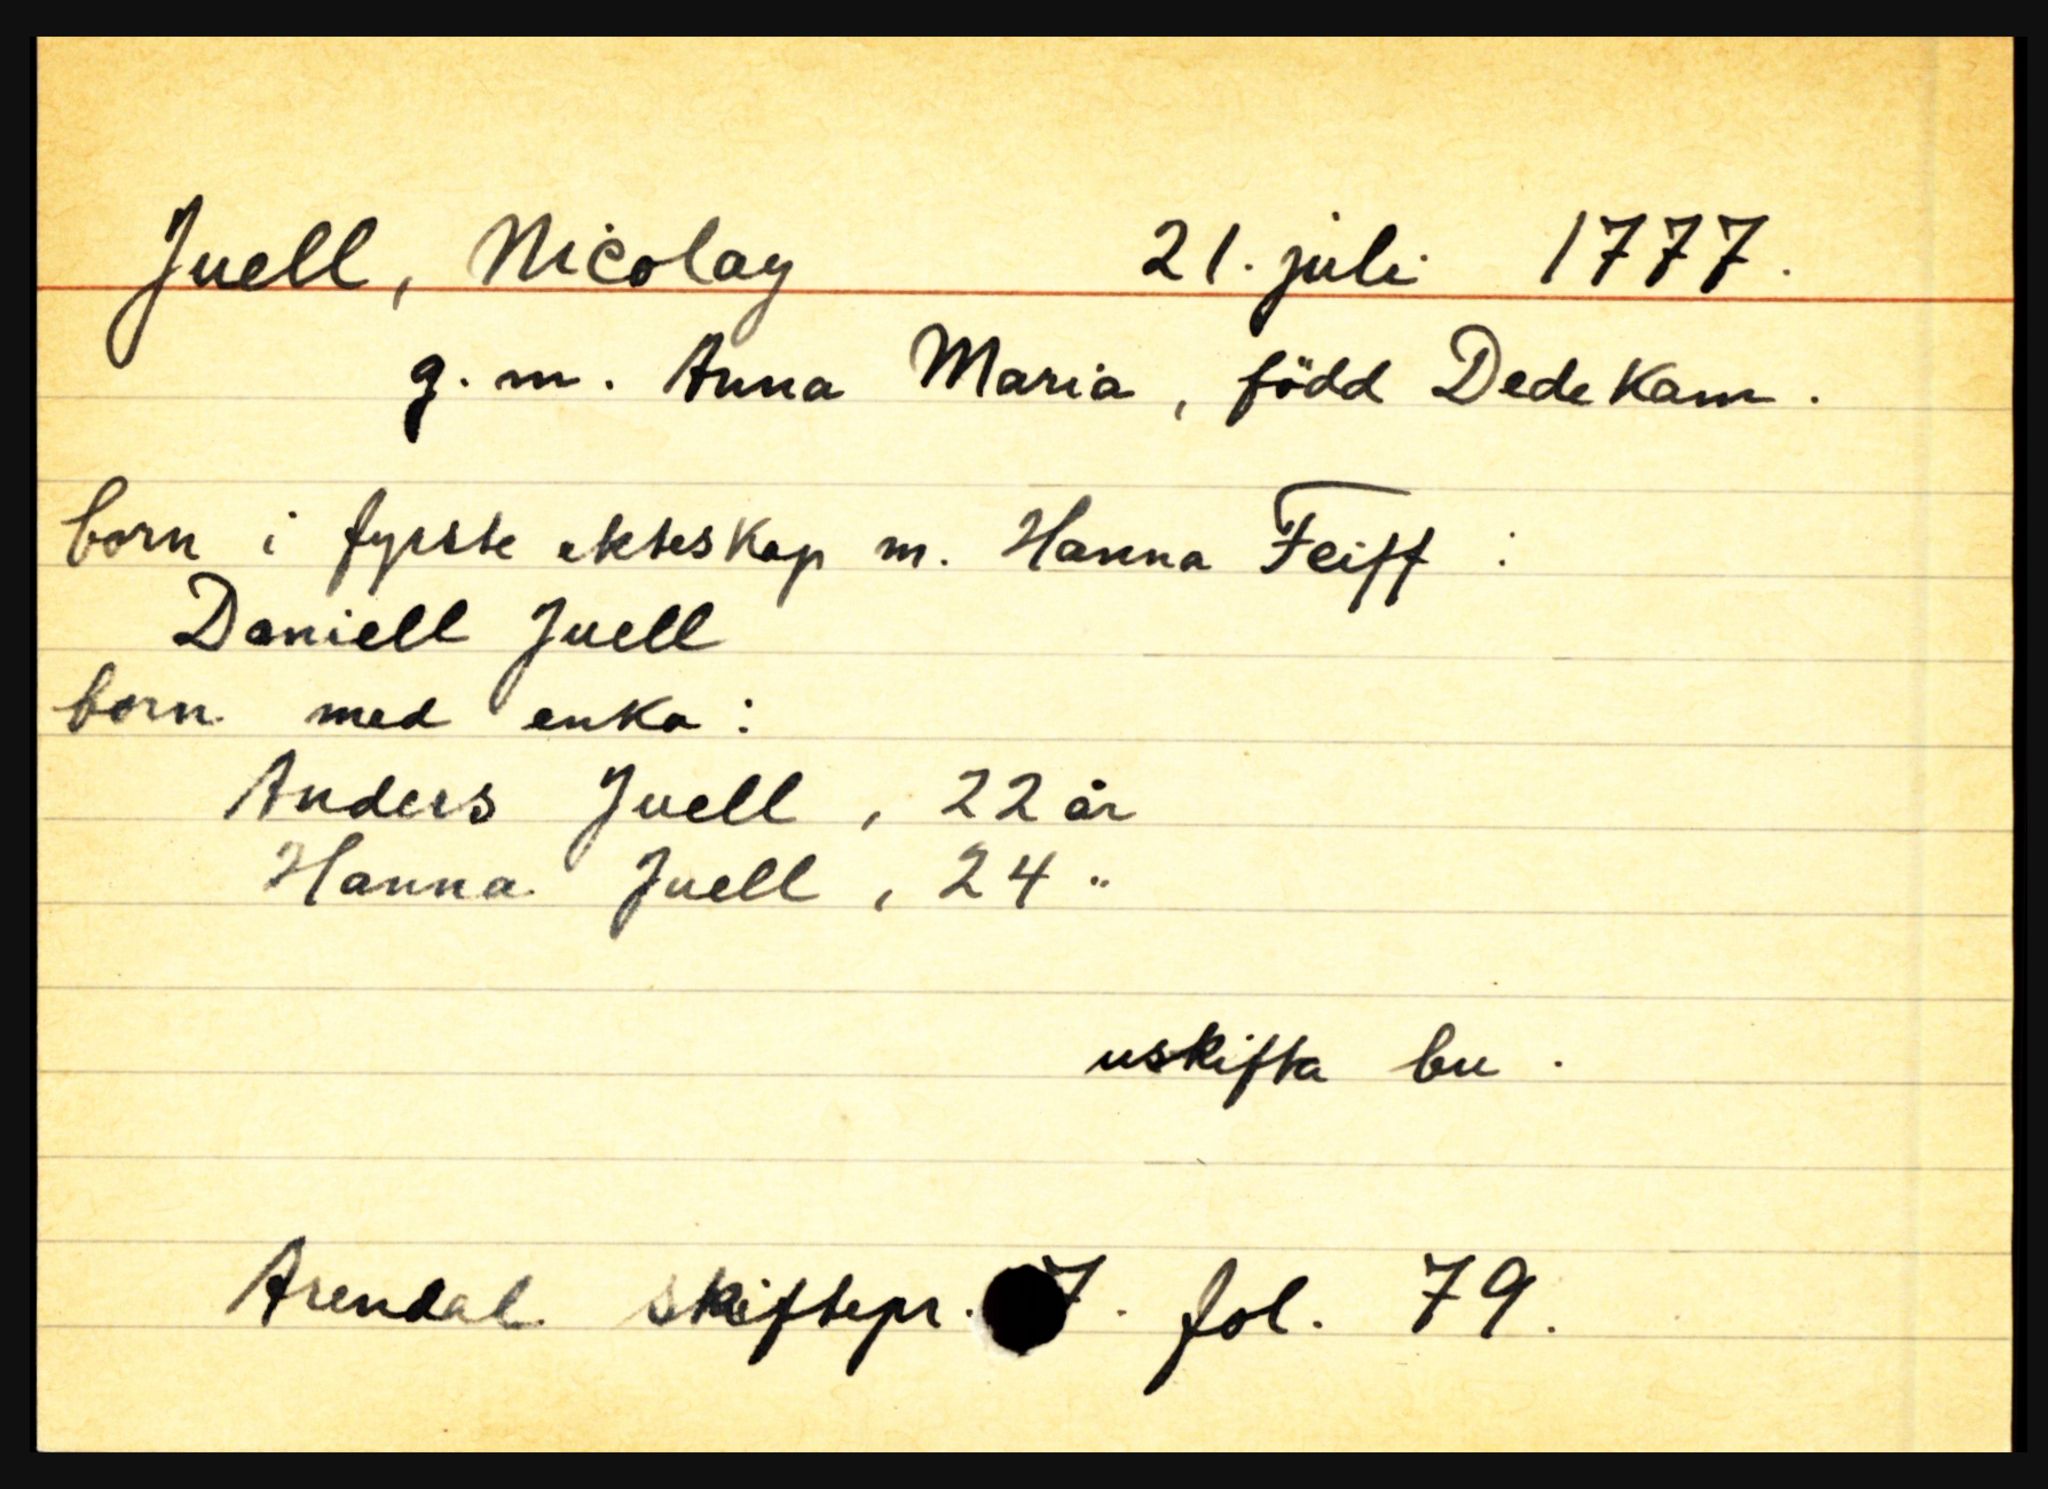 Juell, Nicolay 21. juli 1777.
g. m. Anna Maria, född Dedekam.
born i fyrste ekteskap m. Hanna Feiff :
Daniell Juell
born med enka :
Anders Juell, 22 år
Hanna Juell, 24 "
uskifta bu.
Arendal skiftepr. 7. fol. 79.